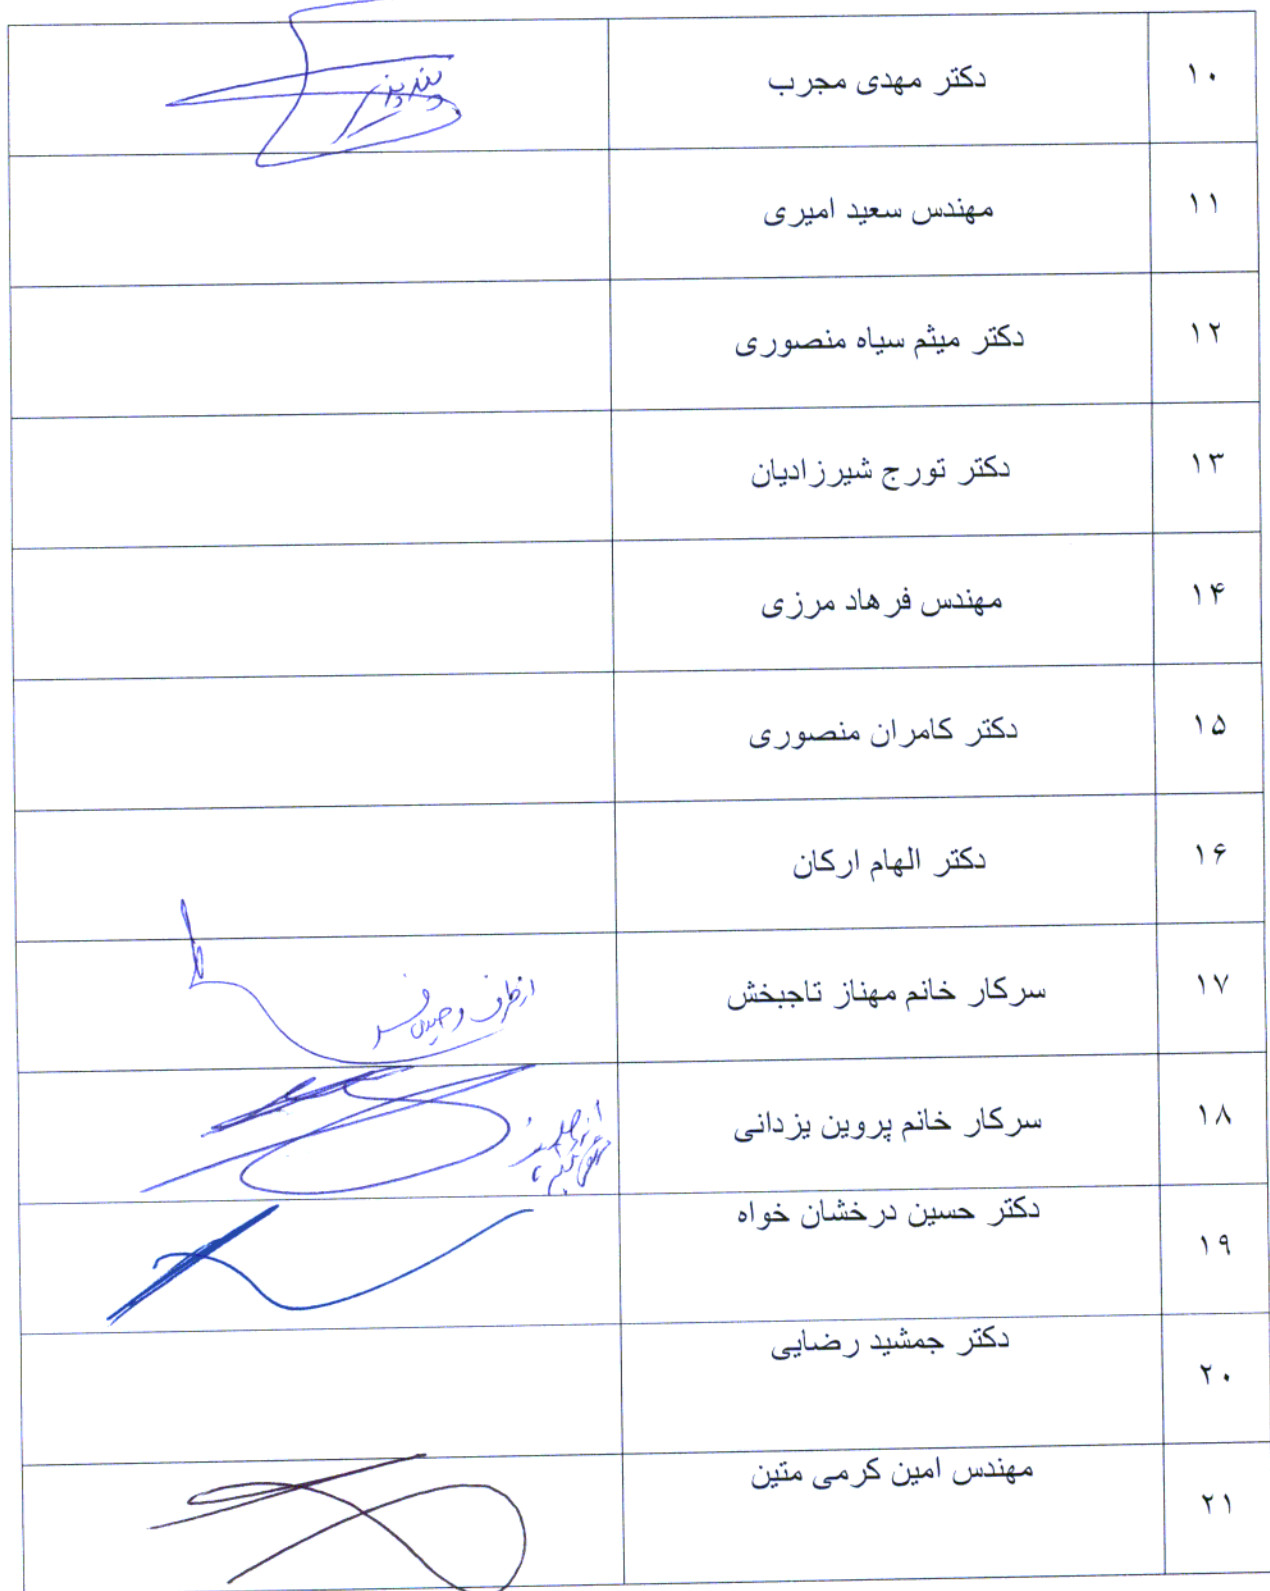 ۱۰ دکتر مهدی مجرب
۱۱ مهندس سعید امیری
۱۲ دکتر میثم سیاه منصوری
۱۳ دکتر تورج شیرزادیان
۱۴ مهندس فرهاد مرزی
۱۵ دکتر کامران منصوری
۱۶ دکتر الهام ارکان
۱۷ سرکار خانم مهناز تاجبخش از طرف
۱۸ سرکار خانم پروین یزدانی
۱۹ دکتر حسین درخشان خواه
۲۰ دکتر جمشید رضایی
۲۱ مهندس امین کرمی متین